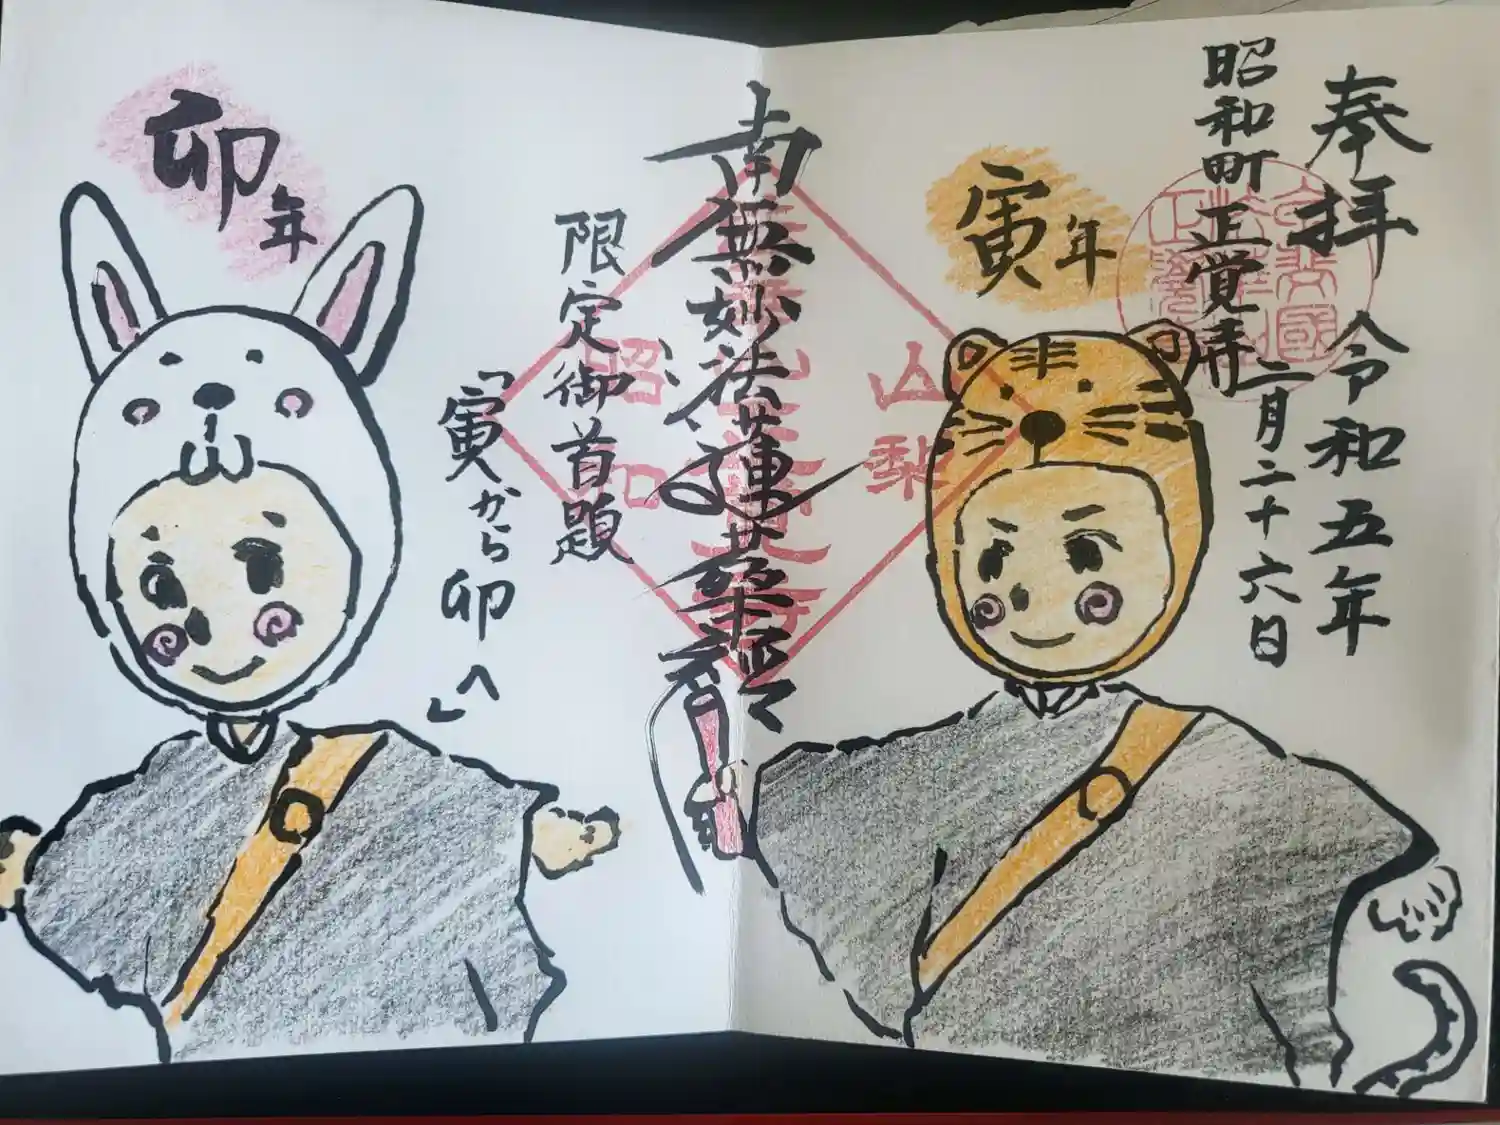 奉拝 令和五年
二月二十六日
昭和町 正覚寺
寅年
山梨
南無妙法蓮華経
昭和
限定御首題
「寅から卯へ」
卯年